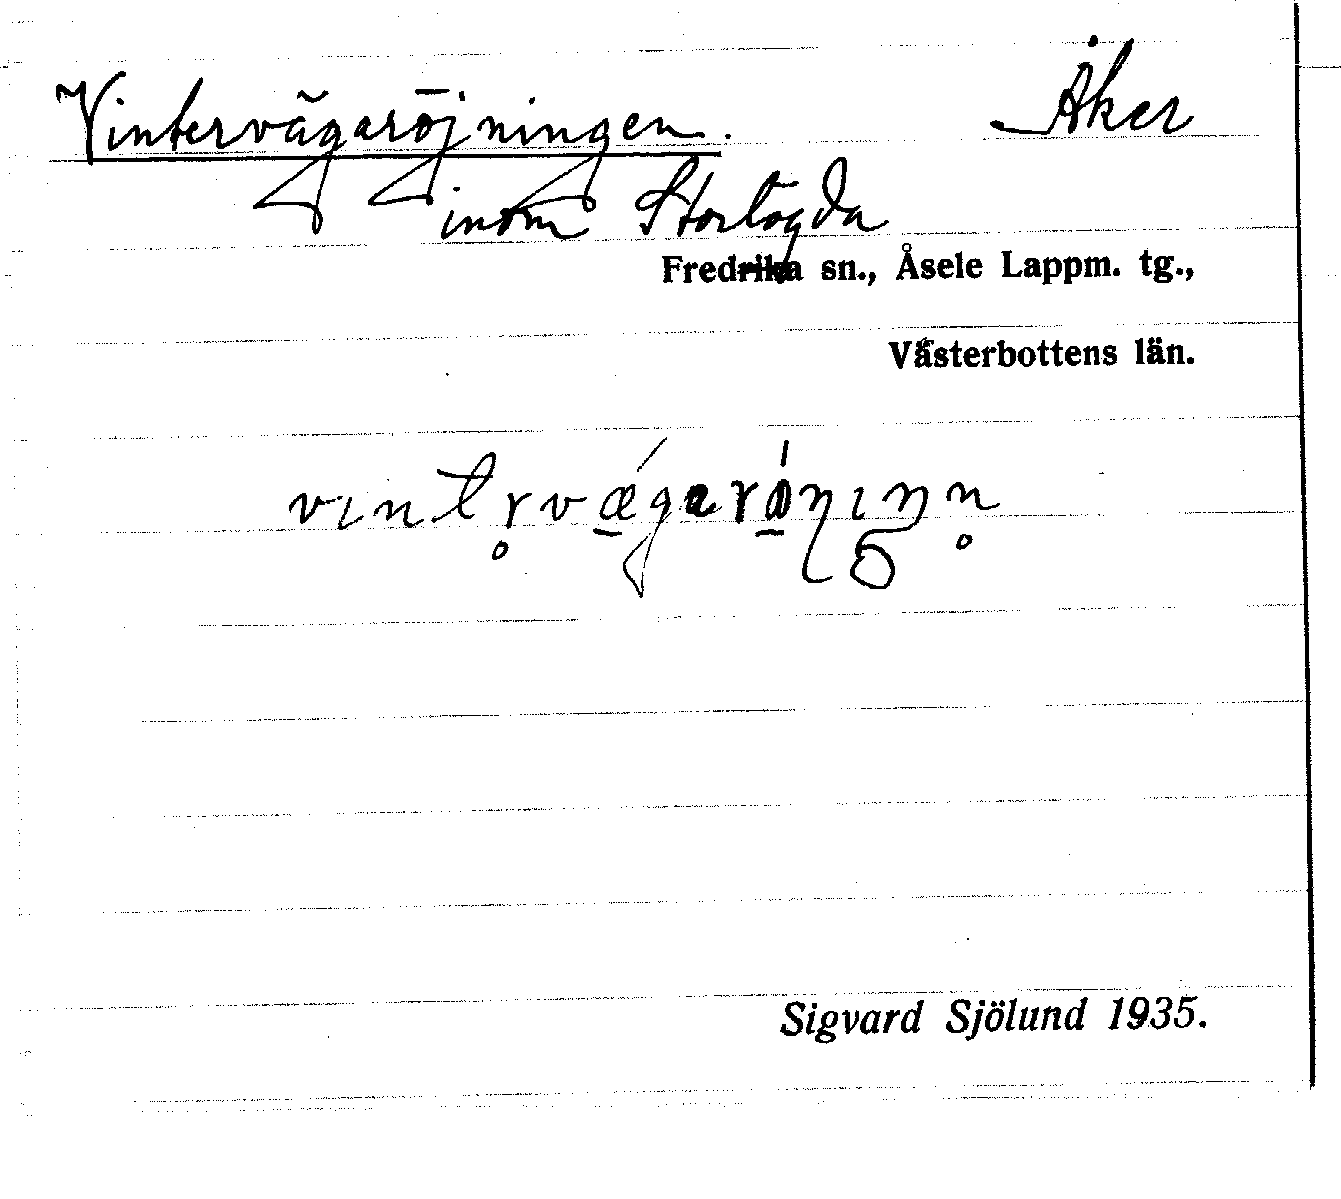 Vintervägaröjningen. Åker
inom Stortögda
Fredrika sn., Åsele Lappm. tg.,
Västerbottens län.
Sigvard Sjölund 1935.